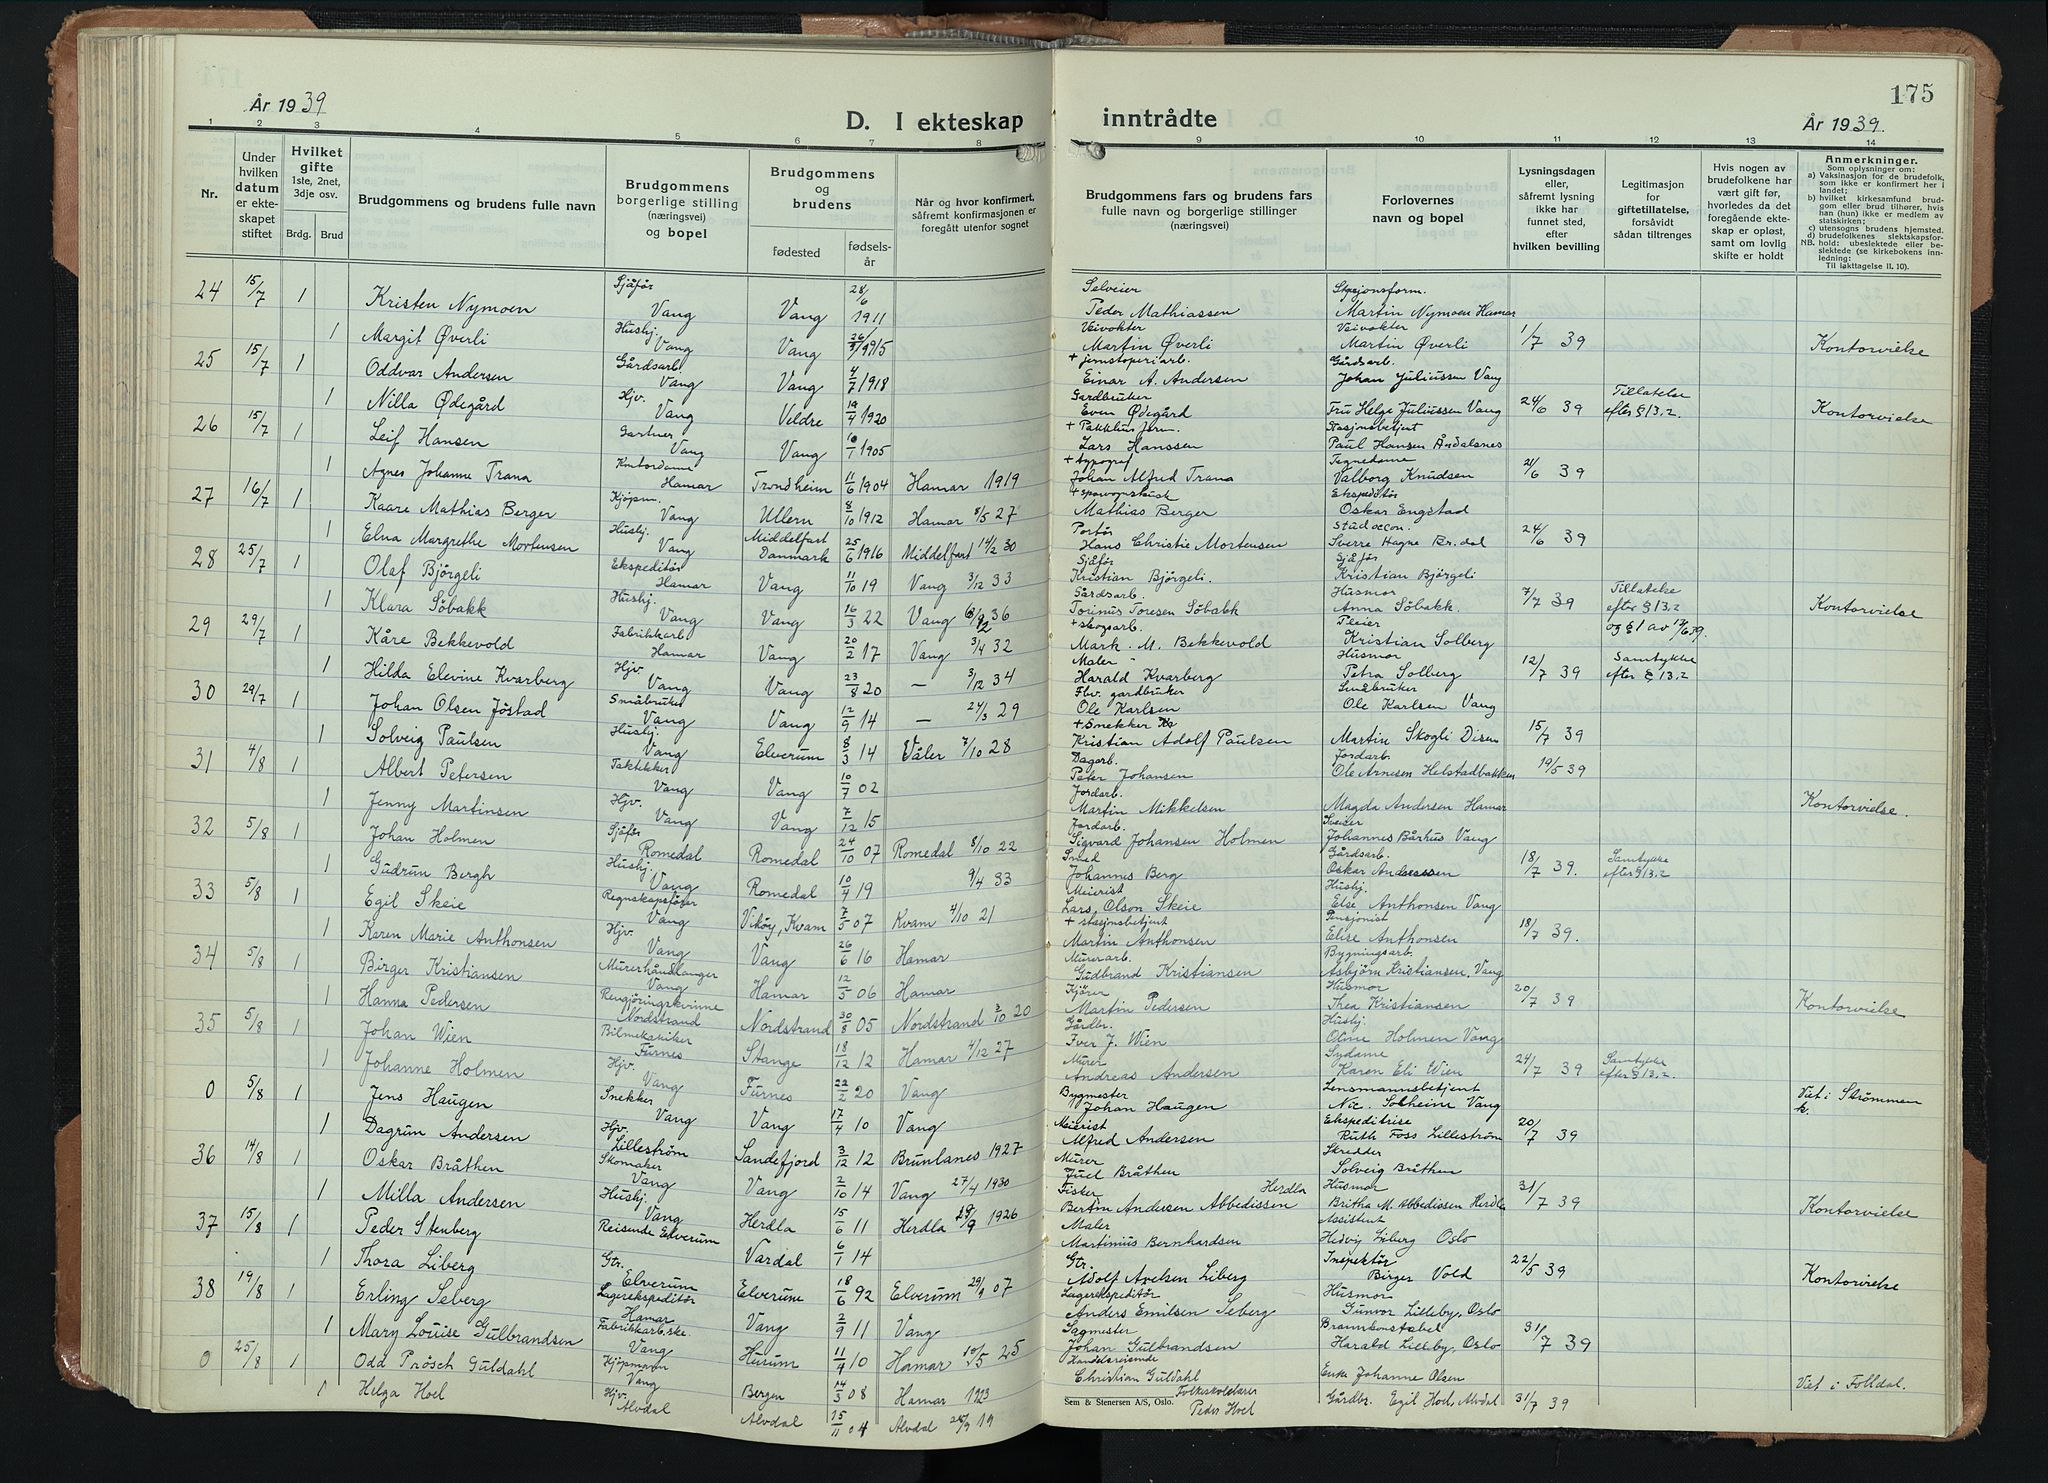 175
År 1939
D. I ekteskap inntrådte
År 1939.
1 2 3 4 5 6 7 8 9 10 11 12 13 14
Nr.
Under hvilken datum er ekteskapet stiftet
Hvilket gifte 1ste, 2net, 3dje osv.
Brdg. Brud
Brudgommens og brudens fulle navn
Brudgommens borgerlige stilling (næringsvei) og bopel
Brudgommens og brudens
fødested
fødselsår
Når og hvor konfirmert, såfremt konfirmasjonen er foregått utenfor sognet
Brudgommens fars og brudens fars fulle navn og borgerlige stillinger (næringsvei)
Forlovernes navn og bopel
Lysningsdagen eller, såfremt lysning ikke har funnet sted, efter hvilken bevilling
Legitimasjon for giftetillatelse, forsåvidt sådan tiltrenges
Hvis nogen av brudefolkene har vært gift før, hvorledes da det foregående ekteskap er opløst, samt om lovlig skifte er holdt
Anmerkninger.
Som oplysninger om:
a) Vaksinasjon for de brudefolk, som ikke er konfirmert her i landet;
b) hvilket kirkesamfund brudgom eller brud tilhører, hvis han (hun) ikke er medlem av statskirken;
c) utensogns brudens hjemsted.
d) brudefolkenes slektskapsforhold: ubeslektede eller beslektede (se kirkebokens innledning:
NB.
Til iakttagelse II. 10).
24 15/7 1 Kristen Nymoen Sjåfør Vang Vang 28/6 1911 Selveier Peder Mathiassen Martin Nymoen Hamar
1 Margit Øverli Hushj. Vang Vang 1915 Veivokter Martin Øverli Veivokter Martin Øverli 1/7 39 Kontorvielse
25 15/7 1 Oddvar Andersen Gårdsarb. Vang Vang 4/7 1918 Einar A. Andersen Gårdsarb. Johan Juliussen Vang
1 Nilla Ødegård Hjv. Vang Veldre 19/4 1920 Gardbruker Even Ødegård Fru Helge Juliussen Vang 24/6 39 Tillatelse efter § 13,2. Kontorvielse
26 15/7 1 Leif Hansen Gartner Vang Vang 1905 Lars Hanssen Stasjonsbetjent Paul Hansen Åndalsnes
1 Agnes Johanne Trana Kontordame Hamar Trondheim 11/6 1904 Hamar 1919 + typograf Johan Alfred Trana Tegnedame Valborg Knudsen 21/6 39
27 16/7 1 Kaare Mathias Berger Kjøpm. Vang Ullern 8/10 1912 Hamar 8/5 27 Mathias Berger Ekspeditør Oskar Engstad
1 Elna Margrethe Mortensen Hushj. Vang Middelfart Danmark 25/6 1916 Middelfart 14/2 30 Portør Hans Christie Mortensen Stud occon. Sverre Hagne 24/6 39
28 25/7 1 Olaf Bjørgeli Ekspeditør Hamar Vang 11/10 19 Vang 3/12 33 Sjåfør Kristian Bjørgeli. Sjåfør Kristian Bjørgeli
1 Klara Søbakk Hushj. Vang Vang 16/3 22 Vang 36 Gårdsarb. Torinus Toresen Søbakk Husmor Anna Søbakk. 7/7 39 Tillatelse efter § 13,2 og § 1 av Kontorvielse
29 29/7 1 Kåre Bekkevold Fabrikkarb Hamar Vang 20/2 17 Vang 3/4 32 + skogsarb. Mark. M. Bekkevold Pleier Kristian Solberg
1 Hilda Elevine Kvarberg Hjv. Vang Vang 23/8 20 — 3/12 34 Maler Harald Kvarberg Husmor Petra Solberg 12/7 39 Samtykke efter § 13,2
30 29/7 1 Johan Olsen Jøstad Småbruker Vang Vang 12/9 14 — 24/3 29 Fhv. gardbruker Ole Karlsen Småbruker Ole Karlsen Vang
1 Solveig Paulsen Hushj. Vang Elverum 8/3 14 Våler 7/10 28 + Snekker Kristian Adolf Paulsen Martin Skogli Disen 15/7 39
31 4/8 1 Albert Petersen Taktekker Vang Vang 10/7 02 Dagarb. Peter Johansen Jordarb. Ole Arnesen Helstadbakken 19/5 39
1 Jenny Martinsen Hjv. Vang Vang 7/12 15 Jordarb. Martin Mikkelsen Magda Andersen Hamar Kontorvielse.
32 5/8 1 Johan Holmen Sjåfør Romedal Romedal 24/10 07 Romedal 8/10 22 Jordarb. Sigvard Johansen Holmen Sveier Johannes Bårhus Vang
1 Gudrun Bergh Hushj. Vang Romedal 10/4 19 9/4 33 Smed Johannes Berg Gårdsarb. Oskar Andersen 18/7 39. Samtykke efter § 13,2
33 5/8 1 Egil Skeie Regnskapsfører Vang Vikøy, Kvam 7/5 07 Kvam 4/10 21 Meierist Lars Olson Skeie Hushj. Else Anthonsen Vang
1 Karen Marie Anthonsen Hjv. Vang Vang 26/6 16 Hamar + stasjonsbetjent Martin Anthonsen Pensjonist Elise Anthonsen 18/7 39.
34 5/8 1 Birger Kristiansen Murerhåndlanger Vang Hamar 12/5 06 Hamar Murerarb. Gudbrand Kristiansen Bygningsarb. Asbjørn Kristiansen, Vang
1 Hanna Pedersen Rengjøringskvinne Nordstrand Nordstrand 30/8 05 Nordstrand 3/10 20 Kjører Martin Pedersen Husmor Thea Kristiansen 20/7 39 Kontorvielse
35 5/8 1 Johan Wien Bilmekaniker Furnes Stange 18/12 12 Hamar 4/12 27 Gårdbr. Iver J. Wien Hushj. Oline Holmen Vang
1 Johanne Holmen Hjv. Vang Furnes 22/2 20 Vang Murer Andreas Andersen Sydame Karen Eli Wien 24/7 39 Samtykke efter § 13,2.
0 5/8 1 Jens Haugen Snekker Vang Vang 17/4 10 Vang Bygmester Johan Haugen Lensmannsbetjent Nic. Solheim Vang Viet i Strømmen k.
1 Dagrun Andersen Hjv. Lillestrøm Sandefjord 3/12 12 Brunlanes 1927 Meierist Alfred Andersen Ekspeditrise Ruth Foss Lillestrøm 20/7 39
36 14/8 1 Oskar Bråthen Skomaker Vang Vang 2/10 14 Vang 27/4 1930 Murer Juel Bråthen Skredder Solveig Bråthen
1 Milla Andersen Hushj. Vang Herdla 15/6 11 Herdla 1926 Fisker Bertin Andersen Abbedissen Herdla Husmor Britha M. Abbedissen Herdla 31/7 39 Kontorvielse
37 15/8 1 Peder Stenberg Reisende Elverum Vardal 6/1 14 Maler Martinius Bernhardsen Assistent Hedvig Liberg Oslo
1 Thora Liberg Gtr. Elverum Elverum 18/6 92 Elverum 07 Gtr. Adolf Axelsen Liberg Inspektør Birger Vold 22/5 39 Kontorvielse
38 19/8 1 Erling Seberg Lagerekspeditør Hamar Vang 2/9 11 Vang Lagerekspeditør Anders Emilsen Seberg Husmor Gunvor Lilleby, Oslo
1 Mary Louise Gulbrandsen Fabrikkarb.ske. Vang Hurum 11/4 10 Hamar 10/5 25 Sagmester Johan Gulbrandsen Brannkonstabel Harald Lilleby, Oslo 31/7 39
0 25/8 1 Odd Prösch Guldahl Kjøpmann Vang Bergen 14/3 08 Hamar 1923 Handelsreisende Christian Guldahl Enke Johanne Olsen Viet i Folldal.
1 Helga Hoel Hjv. Alvdal Alvdal 15/11 04 Alvdal 19 Folkeskolelærer Peder Hoel Gårdbr. Egil Hoel, Alvdal 31/7 39
Sem & Stenersen A/S, Oslo.